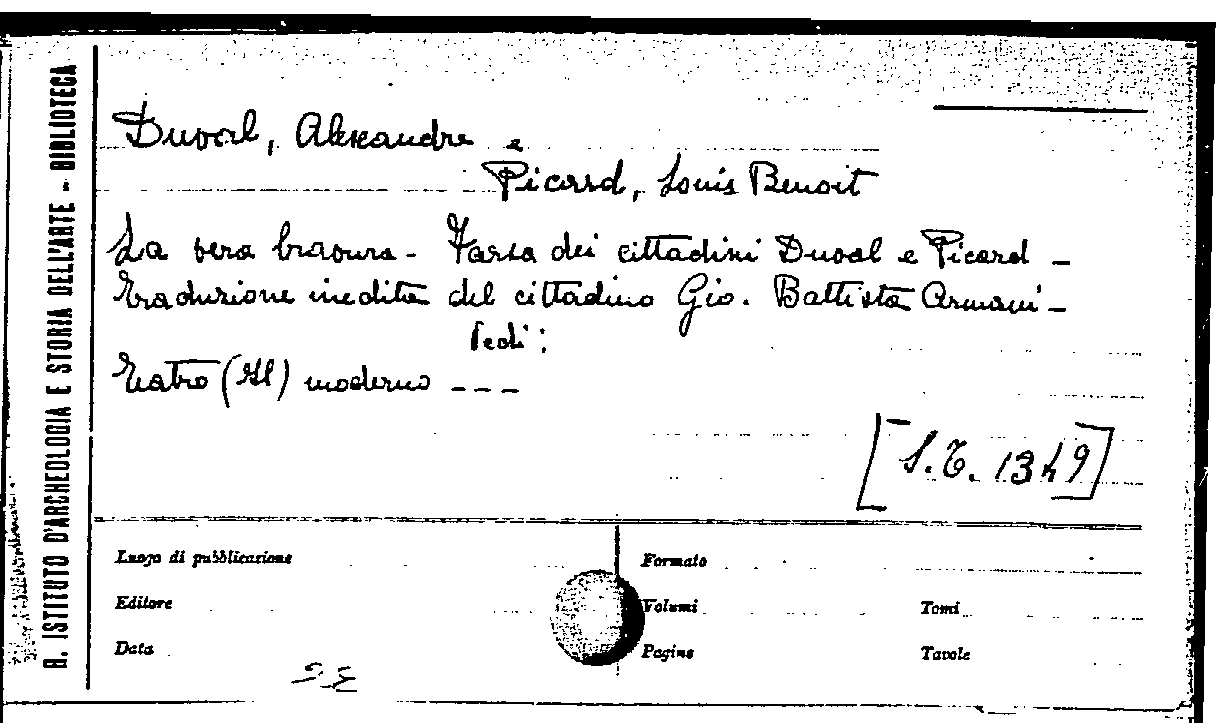 R. ISTITUTO D'ARCHEOLOGIA E STORIA DELL'ARTE - BIBLIOTECA
Duval, Alexandre e
Picard, Louis Benoit
La vera bravura - Farsa dei cittadini Duval e Picard -
Traduzione inedita del cittadino Gio. Battista Armani -
Vedi:
Teatro (Il) moderno - - -
[S.T. 1349]
Luogo di pubblicazione
Formato
Editore
Volumi
Tomi
Data
Pagine
Tavole